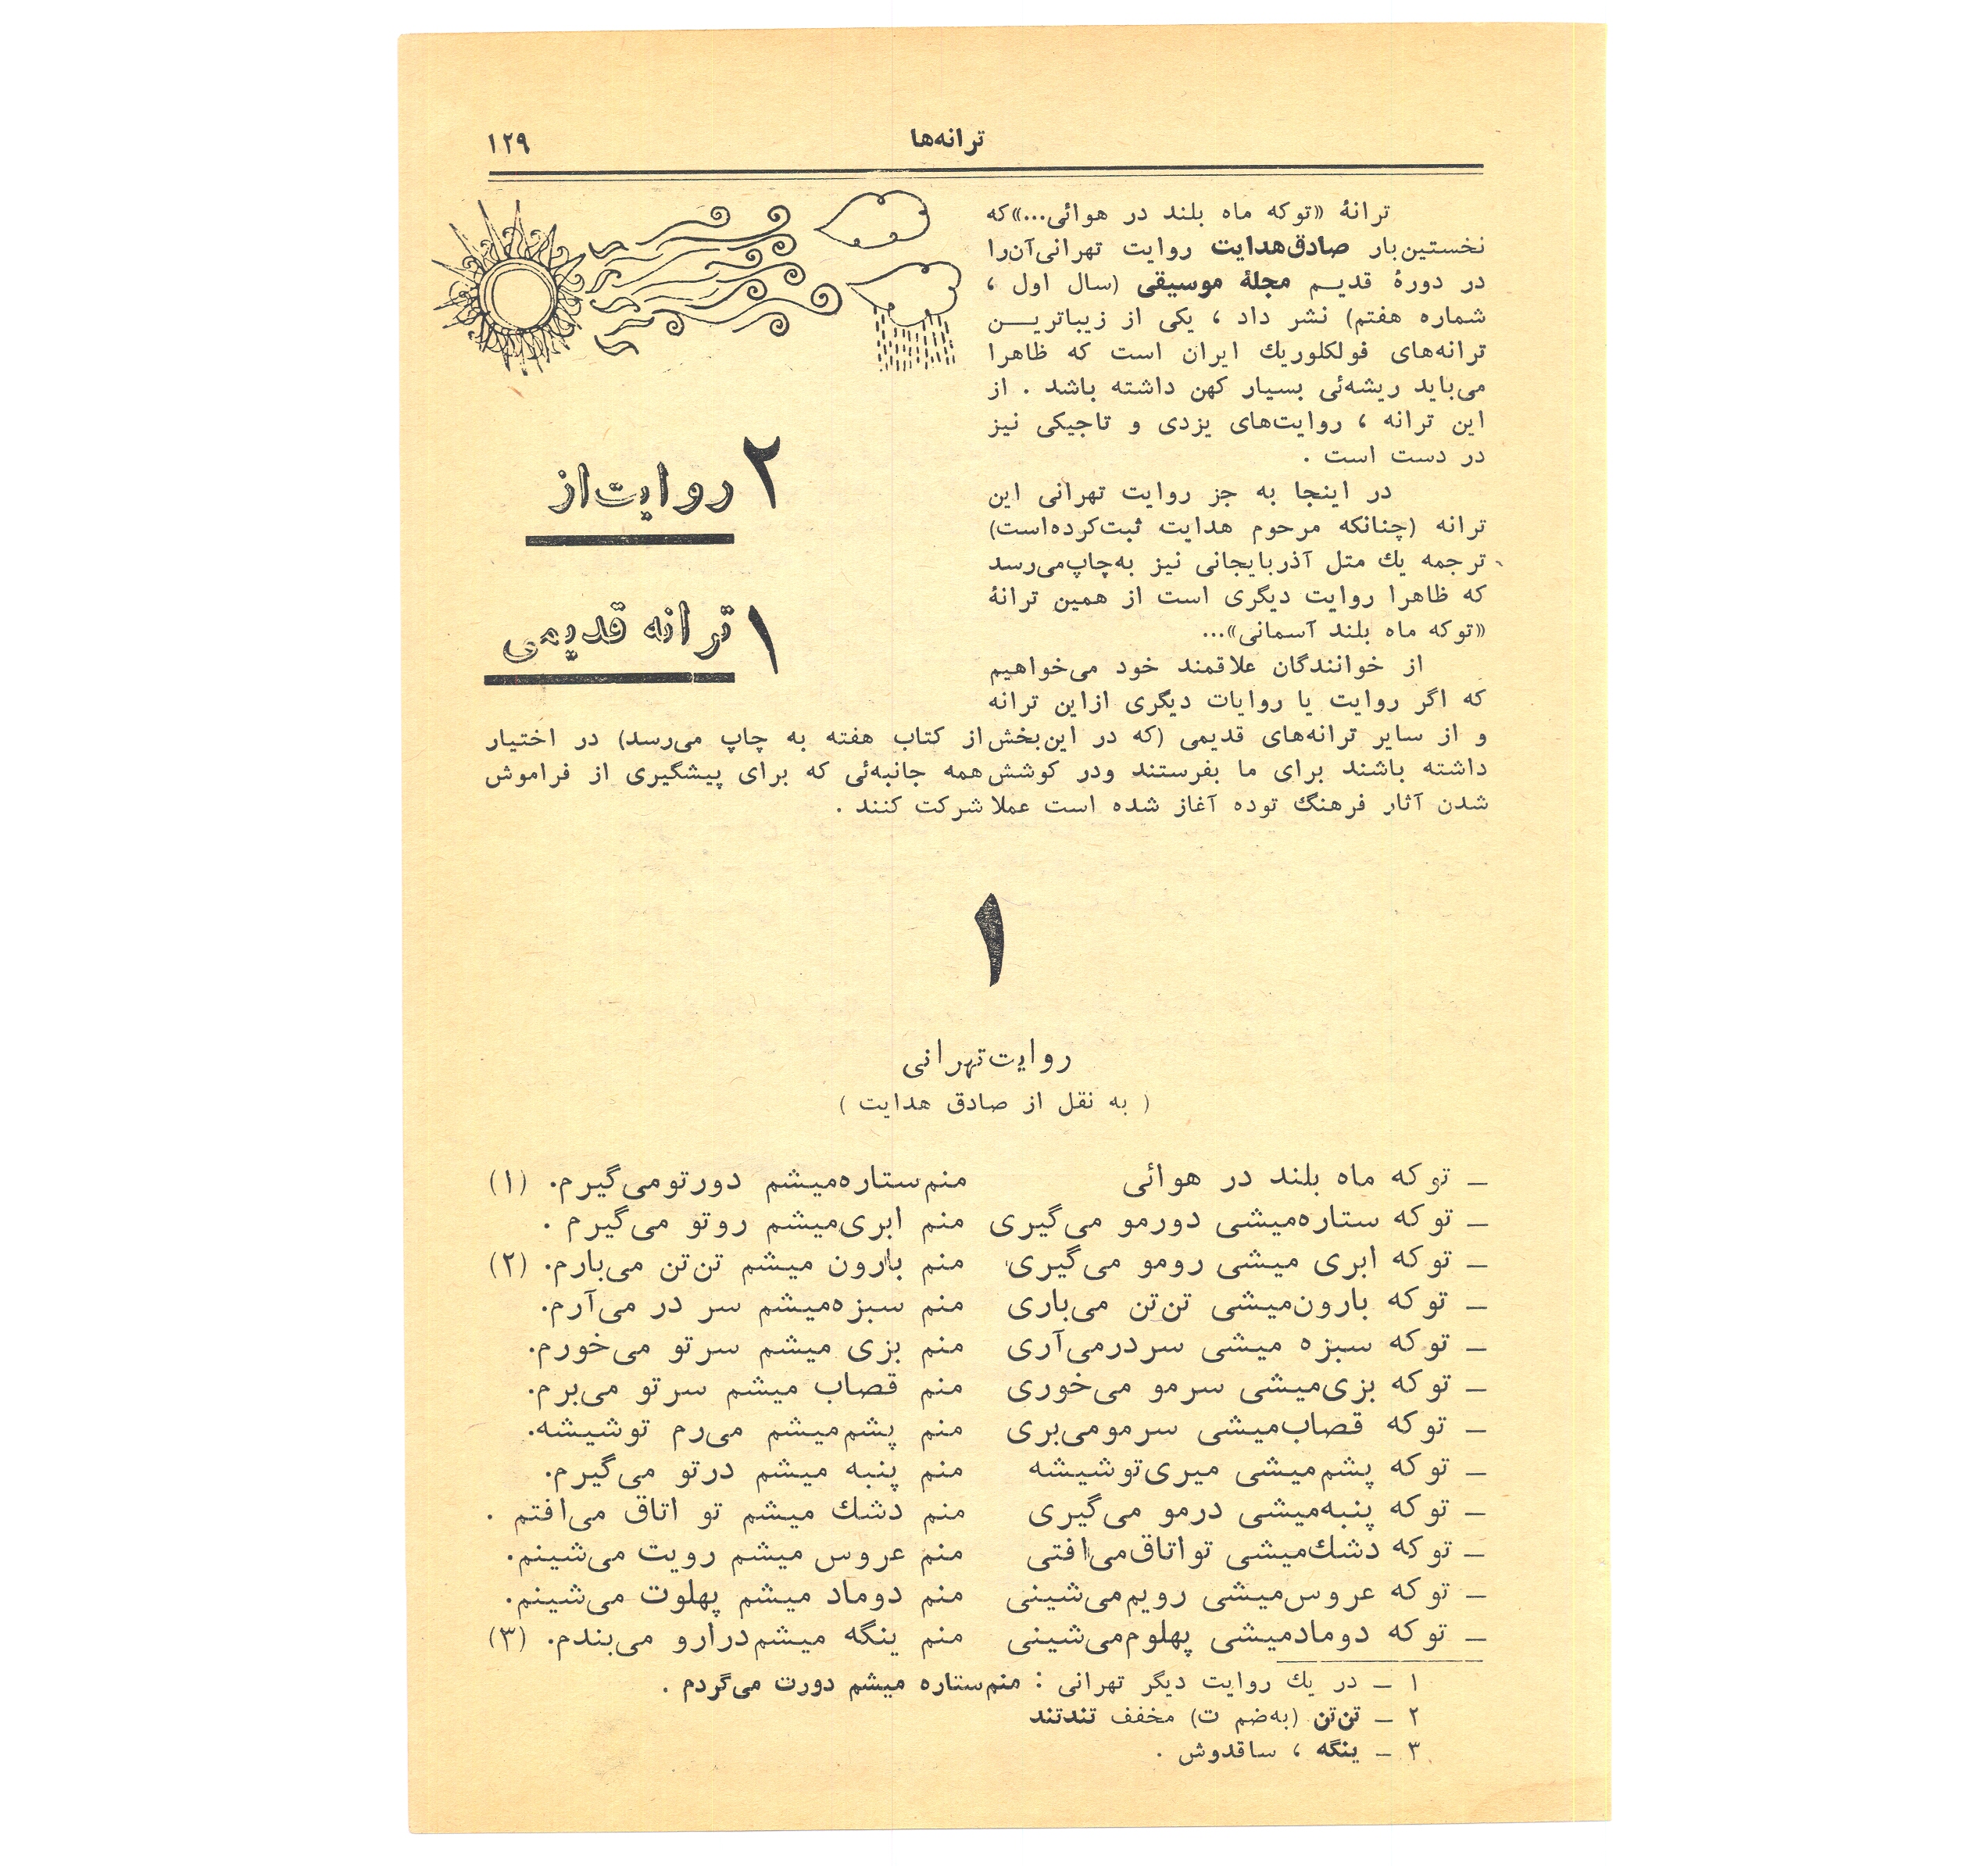 ترانه‌ها
۱۲۹
ترانهٔ «توکه ماه بلند در هوائی...» که
نخستین‌بار صادق‌هدایت روایت تهرانی‌آن‌را
در دورهٔ قدیم مجلهٔ موسیقی (سال اول ،
شماره هفتم) نشر داد ، یکی از زیباترین
ترانه‌های فولکلوریك ایران است که ظاهرا
می‌باید ریشه‌ئی بسیار کهن داشته باشد . از
این ترانه ، روایت‌های یزدی و تاجیکی نیز
در دست است .
در اینجا به جز روایت تهرانی این
ترانه (چنانکه مرحوم هدایت ثبت‌کرده‌است)
ترجمه یك متل آذربایجانی نیز به‌چاپ‌می‌رسد
که ظاهرا روایت دیگری است از همین ترانهٔ
«توکه ماه بلند آسمانی»...
از خوانندگان علاقمند خود می‌خواهیم
که اگر روایت یا روایات دیگری ازاین ترانه
و از سایر ترانه‌های قدیمی (که در این‌بخش از کتاب هفته به چاپ می‌رسد) در اختیار
داشته باشند برای ما بفرستند ودر کوشش همه جانبه‌ئی که برای پیشگیری از فراموش
شدن آثار فرهنگ توده آغاز شده است عملا شرکت کنند .
۲ روایت از
۱ ترانه قدیمی
۱
روایت تهرانی
( به نقل از صادق هدایت )
– توکه ماه بلند در هوائی منم ستاره‌میشم دورتومی‌گیرم. (۱)
– توکه ستاره‌میشی دورمو می‌گیری منم ابری‌میشم روتو می‌گیرم .
– توکه ابری میشی رومو می‌گیری منم بارون میشم تن‌تن می‌بارم. (۲)
– توکه بارون‌میشی تن‌تن می‌باری منم سبزه‌میشم سر در می‌آرم.
– توکه سبزه میشی سردرمی‌آری منم بزی میشم سرتو می‌خورم.
– توکه بزی‌میشی سرمو می‌خوری منم قصاب میشم سرتو می‌برم.
– توکه قصاب‌میشی سرمومی‌بری منم پشم‌میشم می‌رم توشیشه.
– توکه پشم‌میشی میری‌توشیشه منم پنبه میشم درتو می‌گیرم.
– توکه پنبه‌میشی درمو می‌گیری منم دشك میشم تو اتاق می‌افتم .
– توکه دشك‌میشی تواتاق‌می‌افتی منم عروس میشم رویت می‌شینم.
– توکه عروس‌میشی رویم‌می‌شینی منم دوماد میشم پهلوت می‌شینم.
– توکه دومادمیشی پهلوم‌می‌شینی منم ینگه میشم‌درارو می‌بندم. (۳)
۱ – در یك روایت دیگر تهرانی : منم‌ستاره میشم دورت می‌گردم .
۲ – تن‌تن (به‌ضم ت) مخفف تندتند
۳ – ینگه ، ساقدوش .